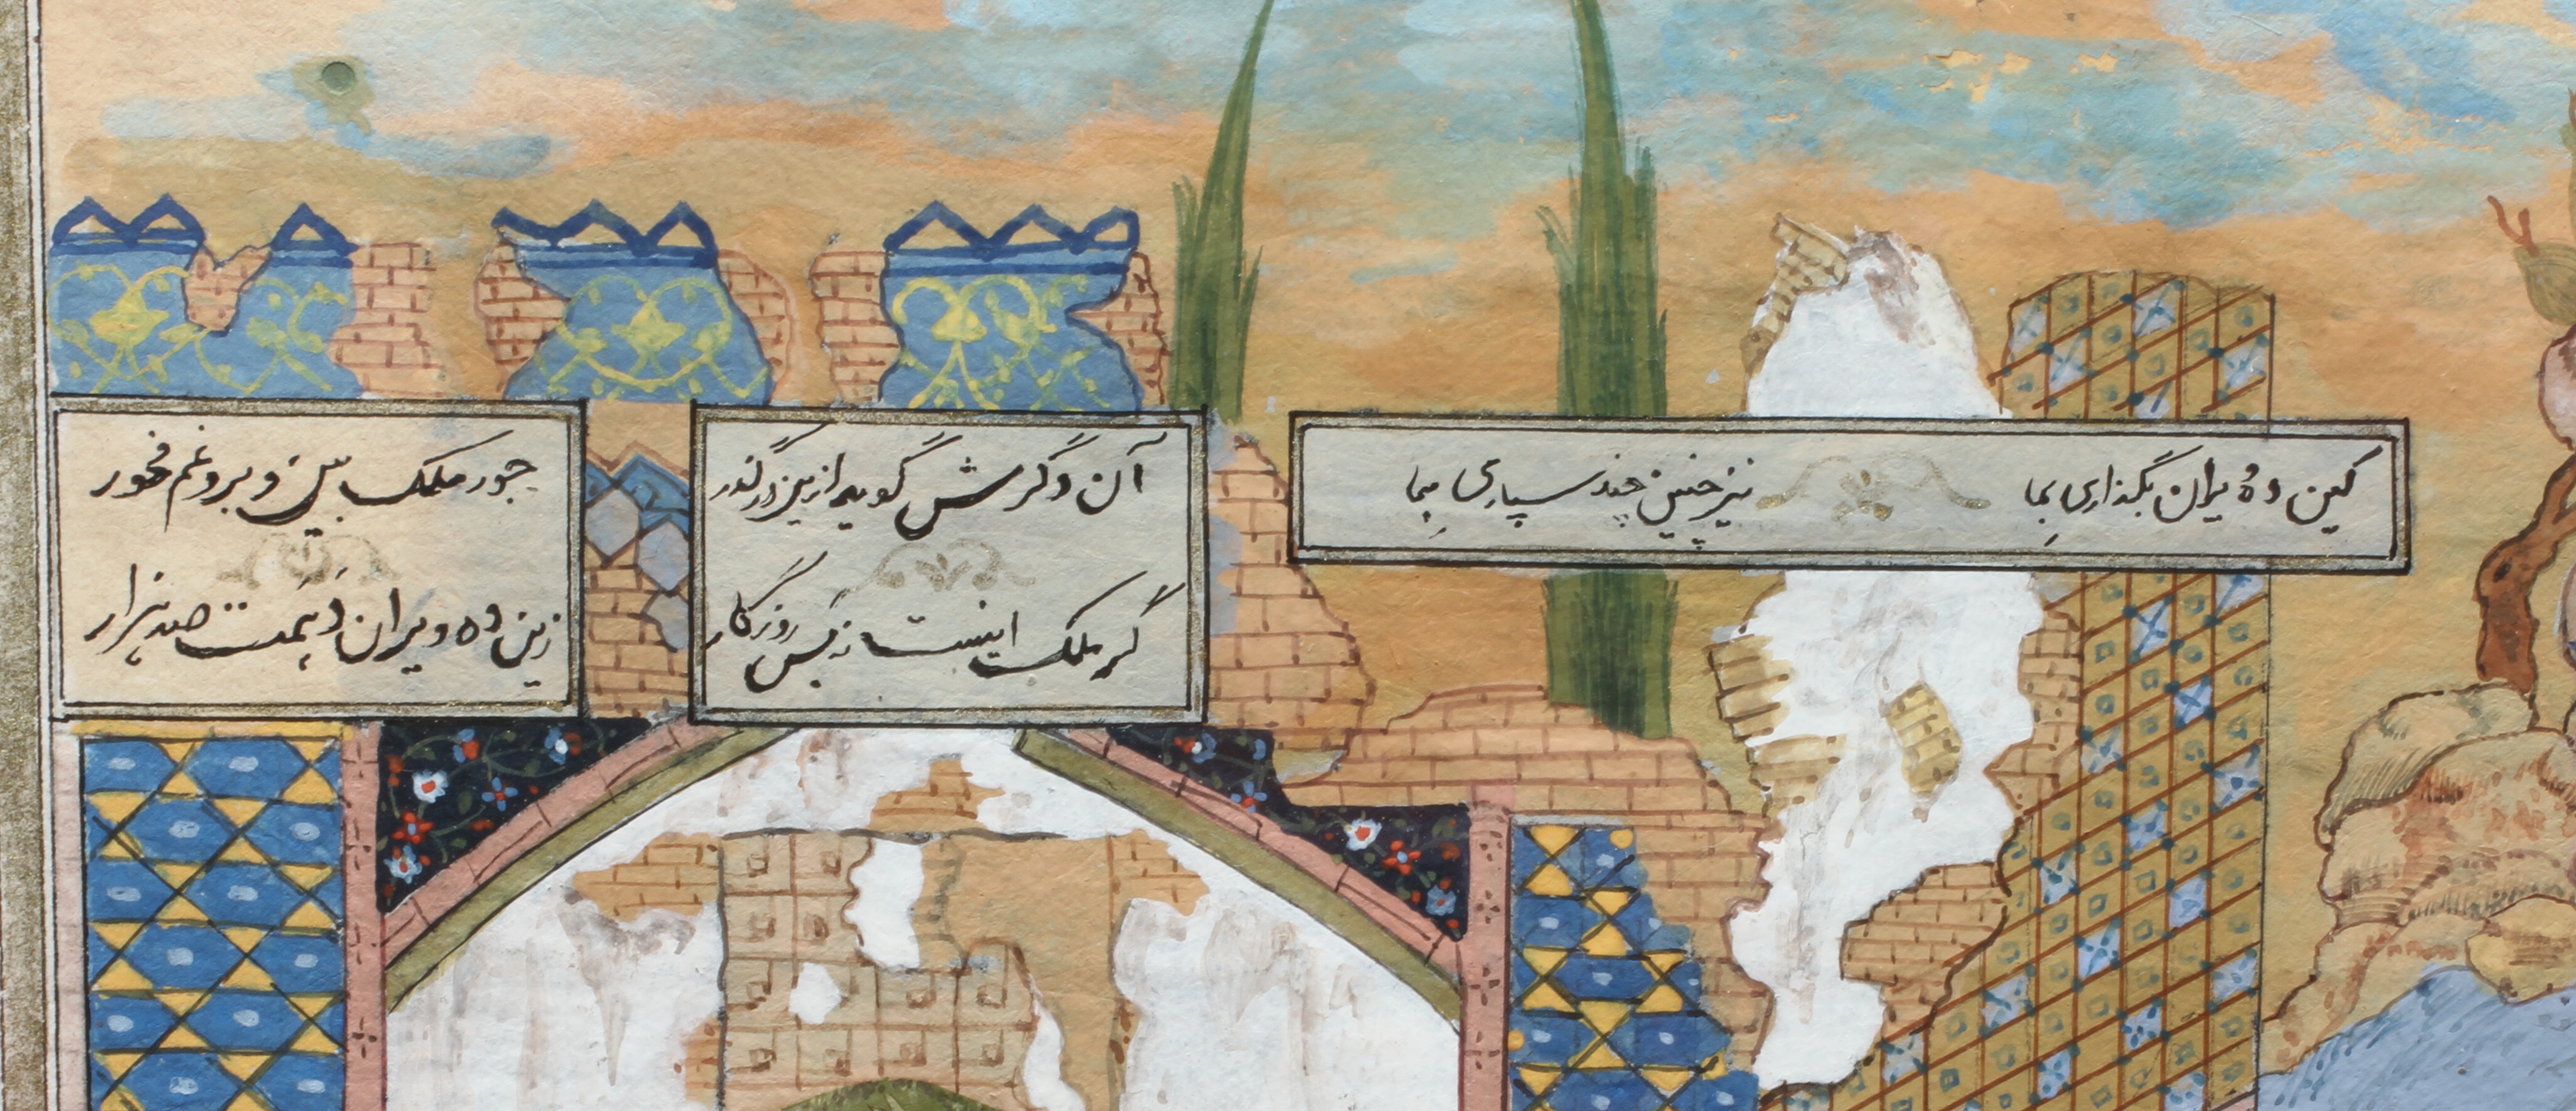 کین ده ویران بگذاری بما نیز چنین چند سپاری بما
آن دگرش گوید ازین درگذر جور ملک بین و برو غم مخور
گر ملک اینست نه بس روزگار زین ده ویران دهمت صد هزار